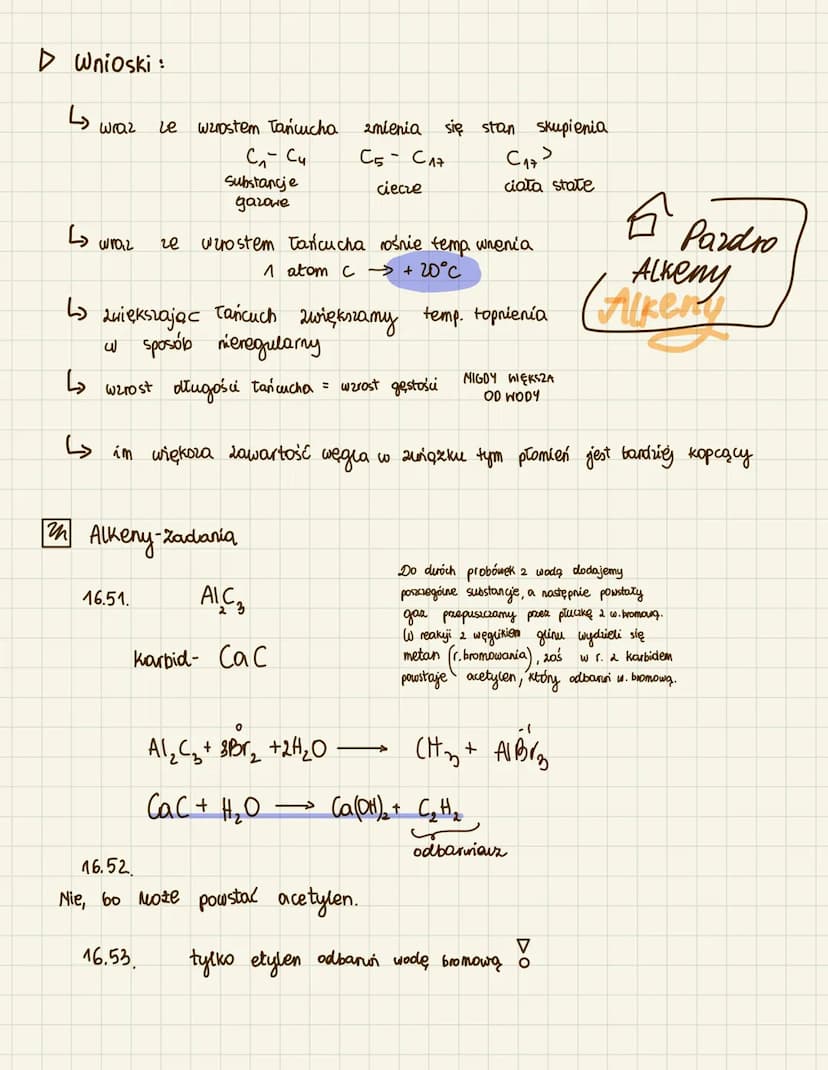 ▷ Wnioski:
↳ wraz ze wzrostem łańcucha zmienia się stan skupienia
C₁- C₄ C₅ - C₁₇ C₁₇>
substancje gazowe
ciecze
ciała stałe
↳ wraz ze wzrostem łańcucha rośnie temp. wrzenia
1 atom C → + 20°C
↳ zwiększając łańcuch zwiększamy temp. topnienia
w sposób nieregularny
↳ wzrost długości łańcucha = wzrost gęstości NIGDY WIĘKSZA
OD WODY
↳ im większa zawartość węgla w związku tym płomień jest bardziej kopcący
Pazdro
Alkeny
Alkeny
Alkeny-Zadania
16.51. Al₂C₃
Karbid- CaC
Do dwóch probówek z wodą dodajemy
poszczególne substancje, a następnie powstały
gaz przepuszczamy przez płuczkę z w.bromową.
W reakcji z węglikiem glinu wydzieli się
metan (r.bromowania), zaś w r. z karbidem
powstaje acetylen, który odbarwi w. bromową.
Al₂C₃ + 3Br₂⁰ + 2H₂O ⟶ CH₃ + AlBr₃⁻¹
CaC + H₂O ⟶ Ca(OH)₂ + C₂H₂
odbarwiacz
16.52.
Nie, bo może powstać acetylen.
16.53. tylko etylen odbarwi wodę bromową !